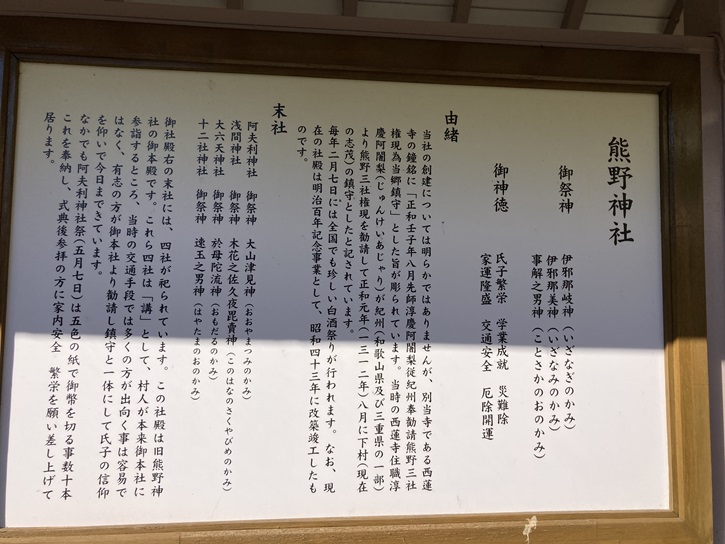 熊野神社
御祭神
伊邪那岐神（いざなぎのかみ）
伊邪那美神（いざなみのかみ）
事解之男神（ことさかのおのかみ）
御神徳
氏子繁栄　学業成就　災難除
家運隆盛　交通安全　厄除開運
由緒
当社の創建については明らかではありませんが、別当寺である西蓮
寺の鐘銘に「正和壬子年八月先師淳慶阿闍梨従紀州奉勧請熊野三社
権現為当郷鎮守」とした旨が彫られています。当時の西蓮寺住職淳
慶阿闍梨（じゅんけいあじゃり）が紀州（和歌山県及び三重県の一部）
より熊野三社権現を勧請して正和元年（一三一二年）八月に下村（現在
の志茂）の鎮守としたと記されています。
毎年二月七日には全国でも珍しい白酒祭りが行われます。なお、現
在の社殿は明治百年記念事業として、昭和四十三年に改築竣工したも
のです。
末社
阿夫利神社　御祭神　大山津見神（おおやまつみのかみ）
浅間神社　御祭神　木花之佐久夜毘賣神（このはなのさくやびめのかみ）
大六天神社　御祭神　於母陀流神（おもだるのかみ）
十二社神社　御祭神　速玉之男神（はやたまのおのかみ）
御社殿右の末社には、四社が祀られています。この社殿は旧熊野神
社の御本殿です。これら四社は「講」として、村人が本来御本社に
参詣するところ、当時の交通手段では多くの方が出向く事は容易で
はなく、有志の方が御本社より勧請し鎮守と一体にして氏子の信仰
を仰いで今日まできています。
なかでも阿夫利神社祭（五月七日）は五色の紙で御幣を切る事数十本
これを奉納し、式典後参拝の方に家内安全　繁栄を願い差し上げて
居ります。